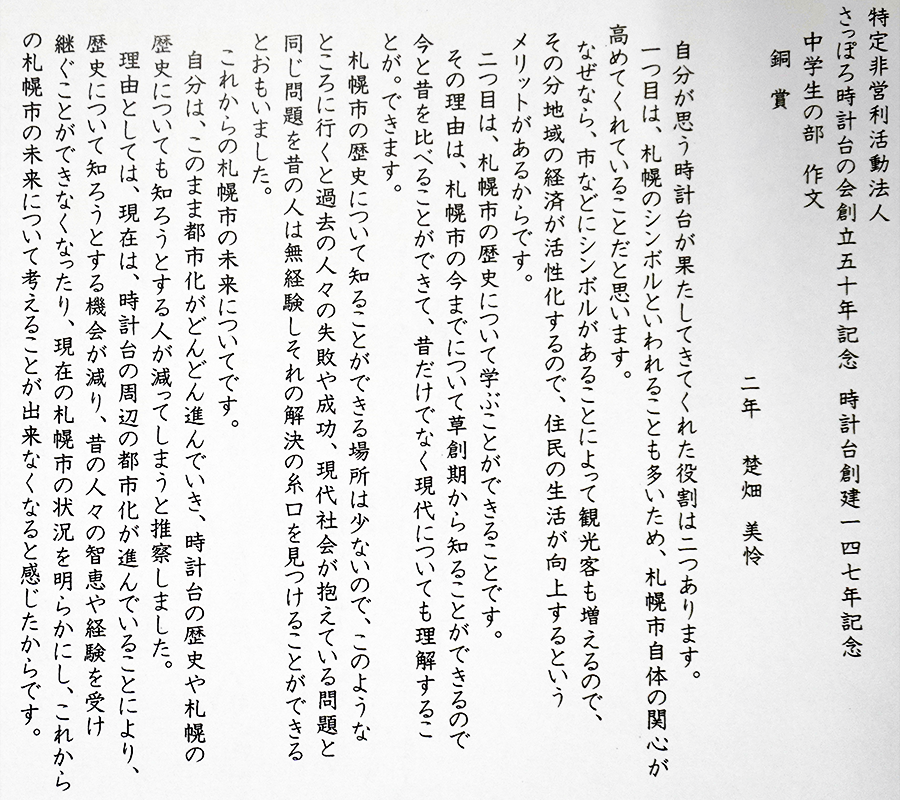 特定非営利活動法人
さっぽろ時計台の会創立五十年記念　時計台創建一四七年記念
中学生の部　作文
銅　賞
二年　楚畑　美怜
自分が思う時計台が果たしてきてくれた役割は二つあります。
一つ目は、札幌のシンボルといわれることも多いため、札幌市自体の関心が
高めてくれていることだと思います。
なぜなら、市などにシンボルがあることによって観光客も増えるので、
その分地域の経済が活性化するので、住民の生活が向上するという
メリットがあるからです。
二つ目は、札幌市の歴史について学ぶことができることです。
その理由は、札幌市の今までについて草創期から知ることができるので
今と昔を比べることができて、昔だけでなく現代についても理解するこ
とが。できます。
札幌市の歴史について知ることができる場所は少ないので、このような
ところに行くと過去の人々の失敗や成功、現代社会が抱えている問題と
同じ問題を昔の人は無経験しそれの解決の糸口を見つけることができる
とおもいました。
これからの札幌市の未来についてです。
自分は、このまま都市化がどんどん進んでいき、時計台の歴史や札幌の
歴史についても知ろうとする人が減ってしまうと推察しました。
理由としては、現在は、時計台の周辺の都市化が進んでいることにより、
歴史について知ろうとする機会が減り、昔の人々の智恵や経験を受け
継ぐことができなくなったり、現在の札幌市の状況を明らかにし、これから
の札幌市の未来について考えることが出来なくなると感じたからです。